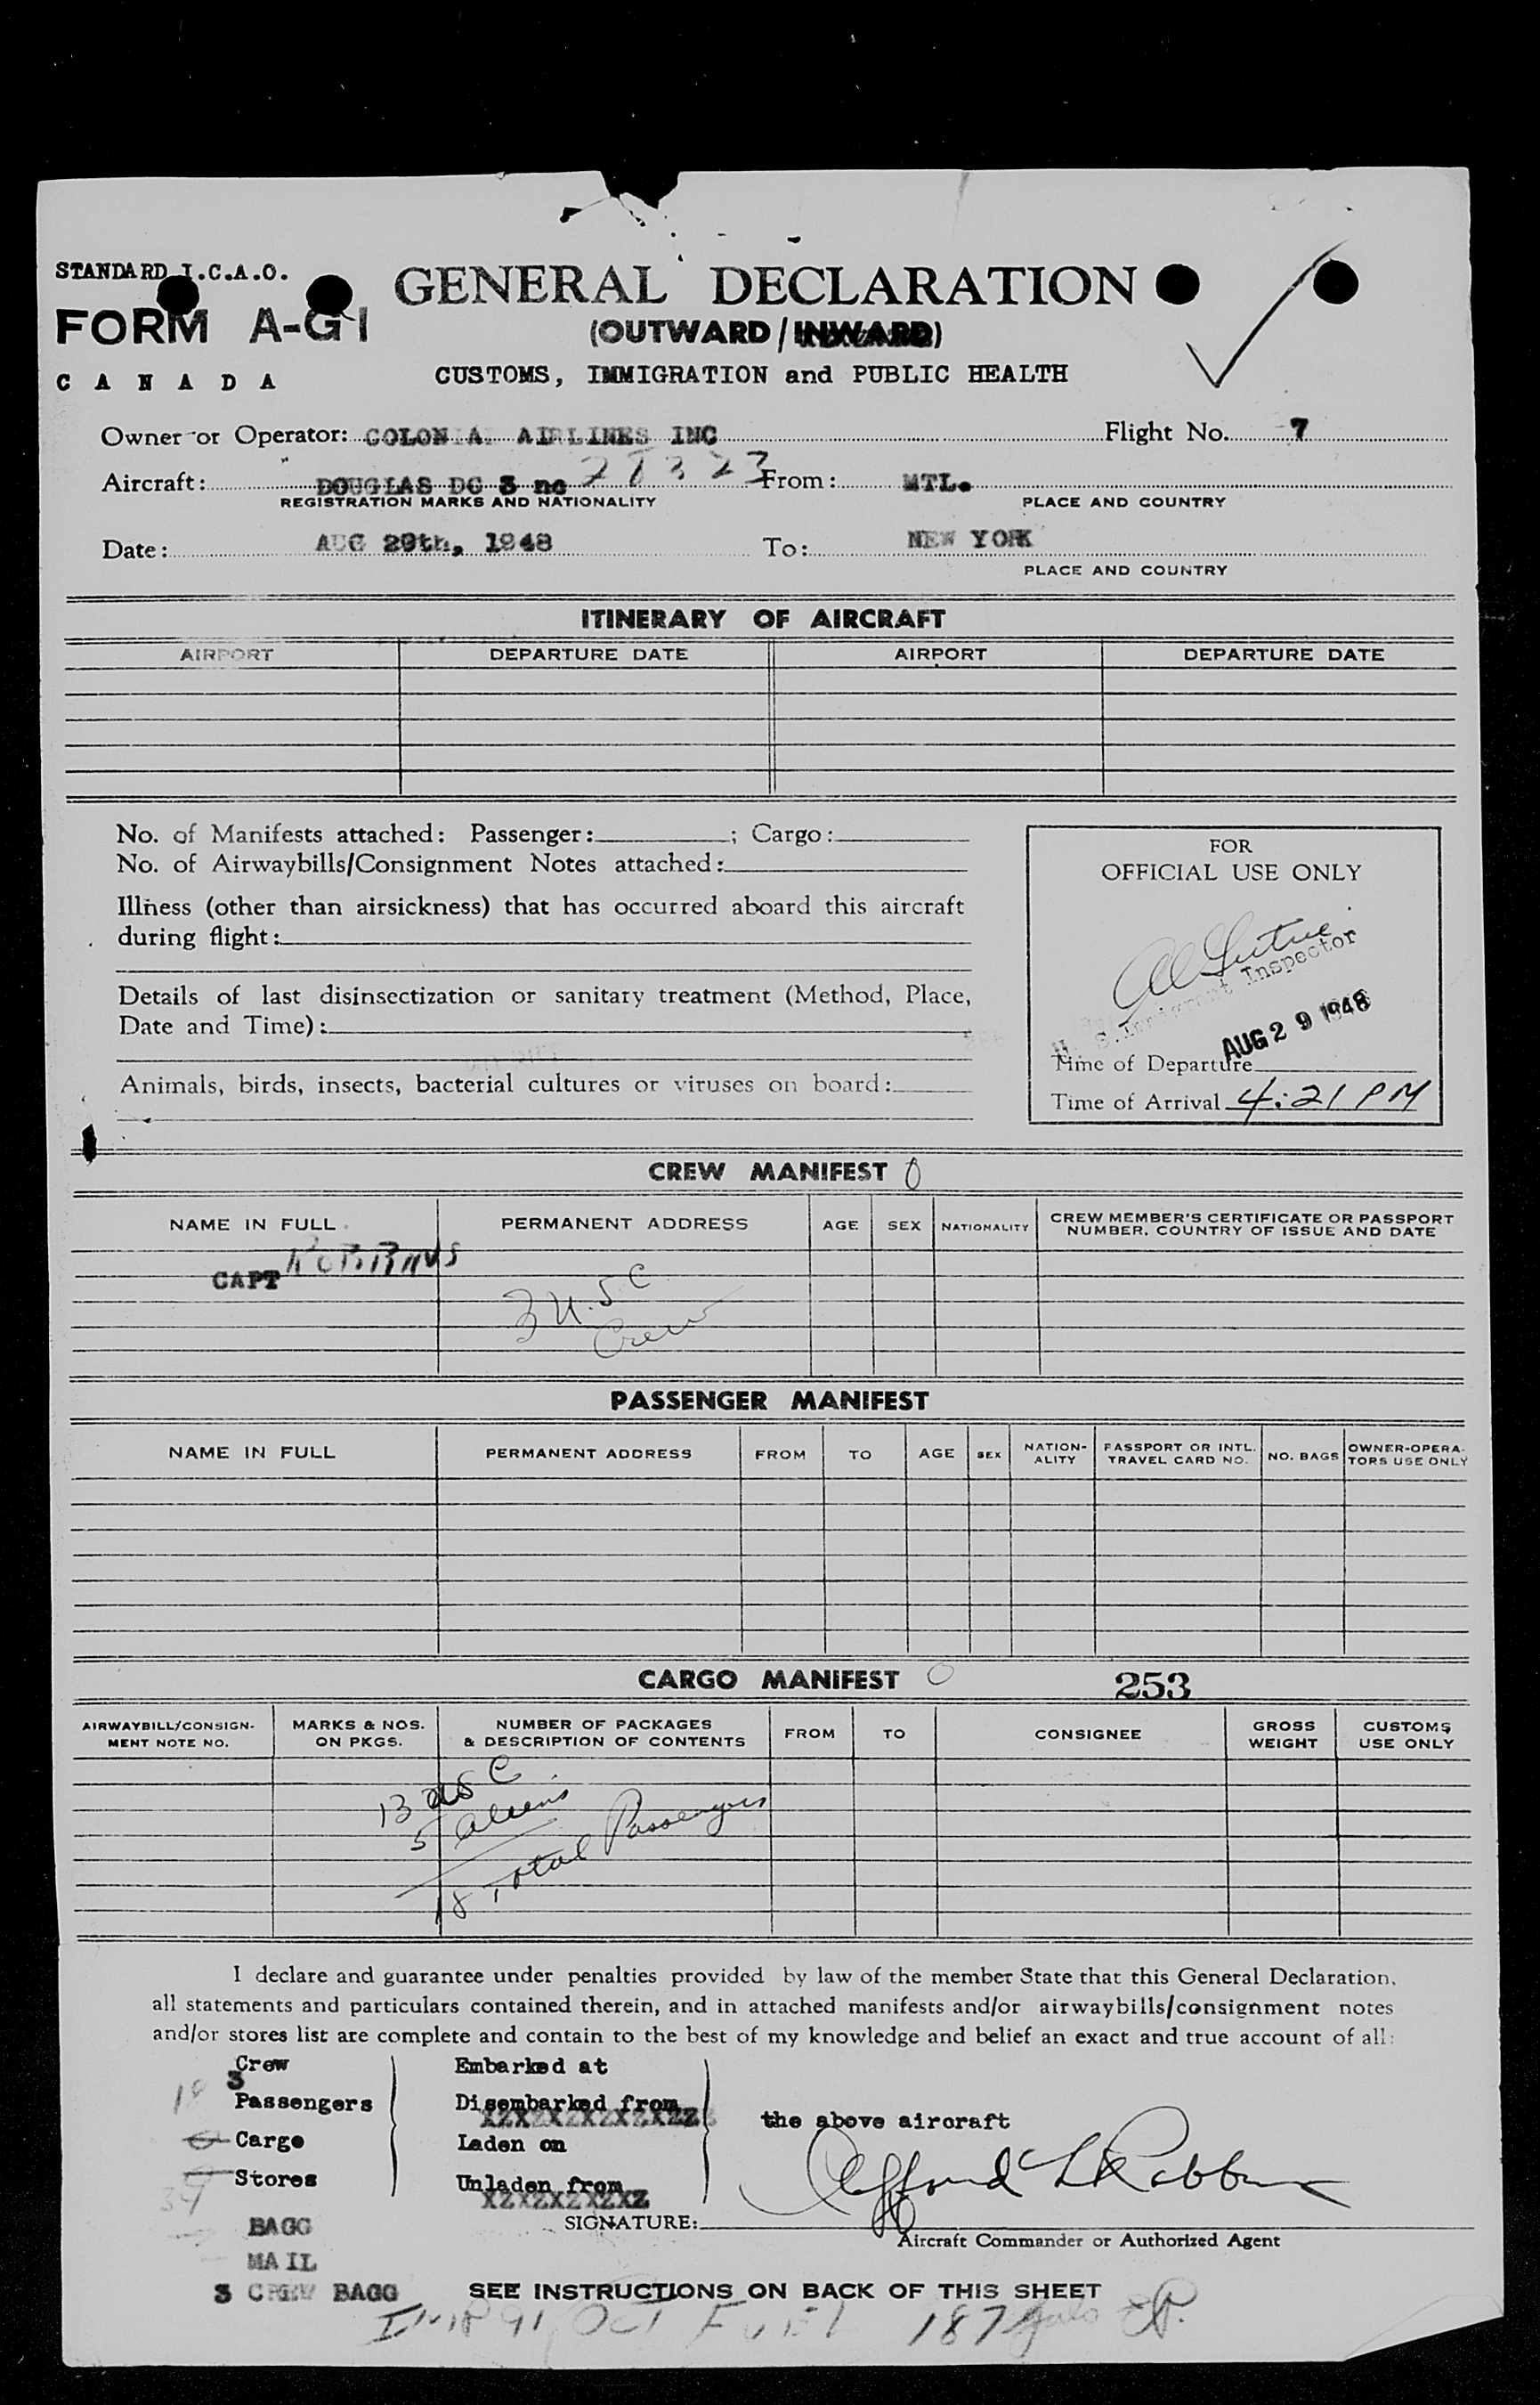 STANDARD I.C.A.O.
FORM A-G1
CANADA
GENERAL DECLARATION
(OUTWARD/INWARD)
CUSTOMS, IMMIGRATION and PUBLIC HEALTH
Owner or Operator: COLONIAL AIRLINES INC Flight No. 7
Aircraft: DOUGLAS DC 3 nc 28323 From: MTL.
REGISTRATION MARKS AND NATIONALITY PLACE AND COUNTRY
Date: AUG 29th, 1948 To: NEW YORK
PLACE AND COUNTRY
ITINERARY OF AIRCRAFT
AIRPORT DEPARTURE DATE AIRPORT DEPARTURE DATE
No. of Manifests attached: Passenger: ; Cargo:
No. of Airwaybills/Consignment Notes attached:
Illness (other than airsickness) that has occurred aboard this aircraft
during flight:
Details of last disinsectization or sanitary treatment (Method, Place,
Date and Time):
Animals, birds, insects, bacterial cultures or viruses on board:
FOR
OFFICIAL USE ONLY
U. S. Immigrant Inspector
AUG 29 1948
Time of Departure
Time of Arrival 4:21 PM
CREW MANIFEST 0
NAME IN FULL PERMANENT ADDRESS AGE SEX NATIONALITY CREW MEMBER'S CERTIFICATE OR PASSPORT
NUMBER, COUNTRY OF ISSUE AND DATE
CAPT ROBBINS
3 U.S C
Crew
PASSENGER MANIFEST
NAME IN FULL PERMANENT ADDRESS FROM TO AGE SEX NATION-
ALITY PASSPORT OR INTL.
TRAVEL CARD NO. NO. BAGS OWNER-OPERA-
TORS USE ONLY
CARGO MANIFEST 0 253
AIRWAYBILL/CONSIGN-
MENT NOTE NO. MARKS & NOS.
ON PKGS. NUMBER OF PACKAGES
& DESCRIPTION OF CONTENTS FROM TO CONSIGNEE GROSS
WEIGHT CUSTOMS
USE ONLY
13 US C
5 Aliens
18 Total Passengers
I declare and guarantee under penalties provided by law of the member State that this General Declaration,
all statements and particulars contained therein, and in attached manifests and/or airwaybills/consignment notes
and/or stores list are complete and contain to the best of my knowledge and belief an exact and true account of all:
Crew Embarked at
3
18 Passengers Disembarked from
the above aircraft
0 Cargo Laden on
Stores Unladen from
BAGG
SIGNATURE:
Aircraft Commander or Authorized Agent
MAIL
3 CREW BAGG SEE INSTRUCTIONS ON BACK OF THIS SHEET
IMP 91 OCT FUEL 187